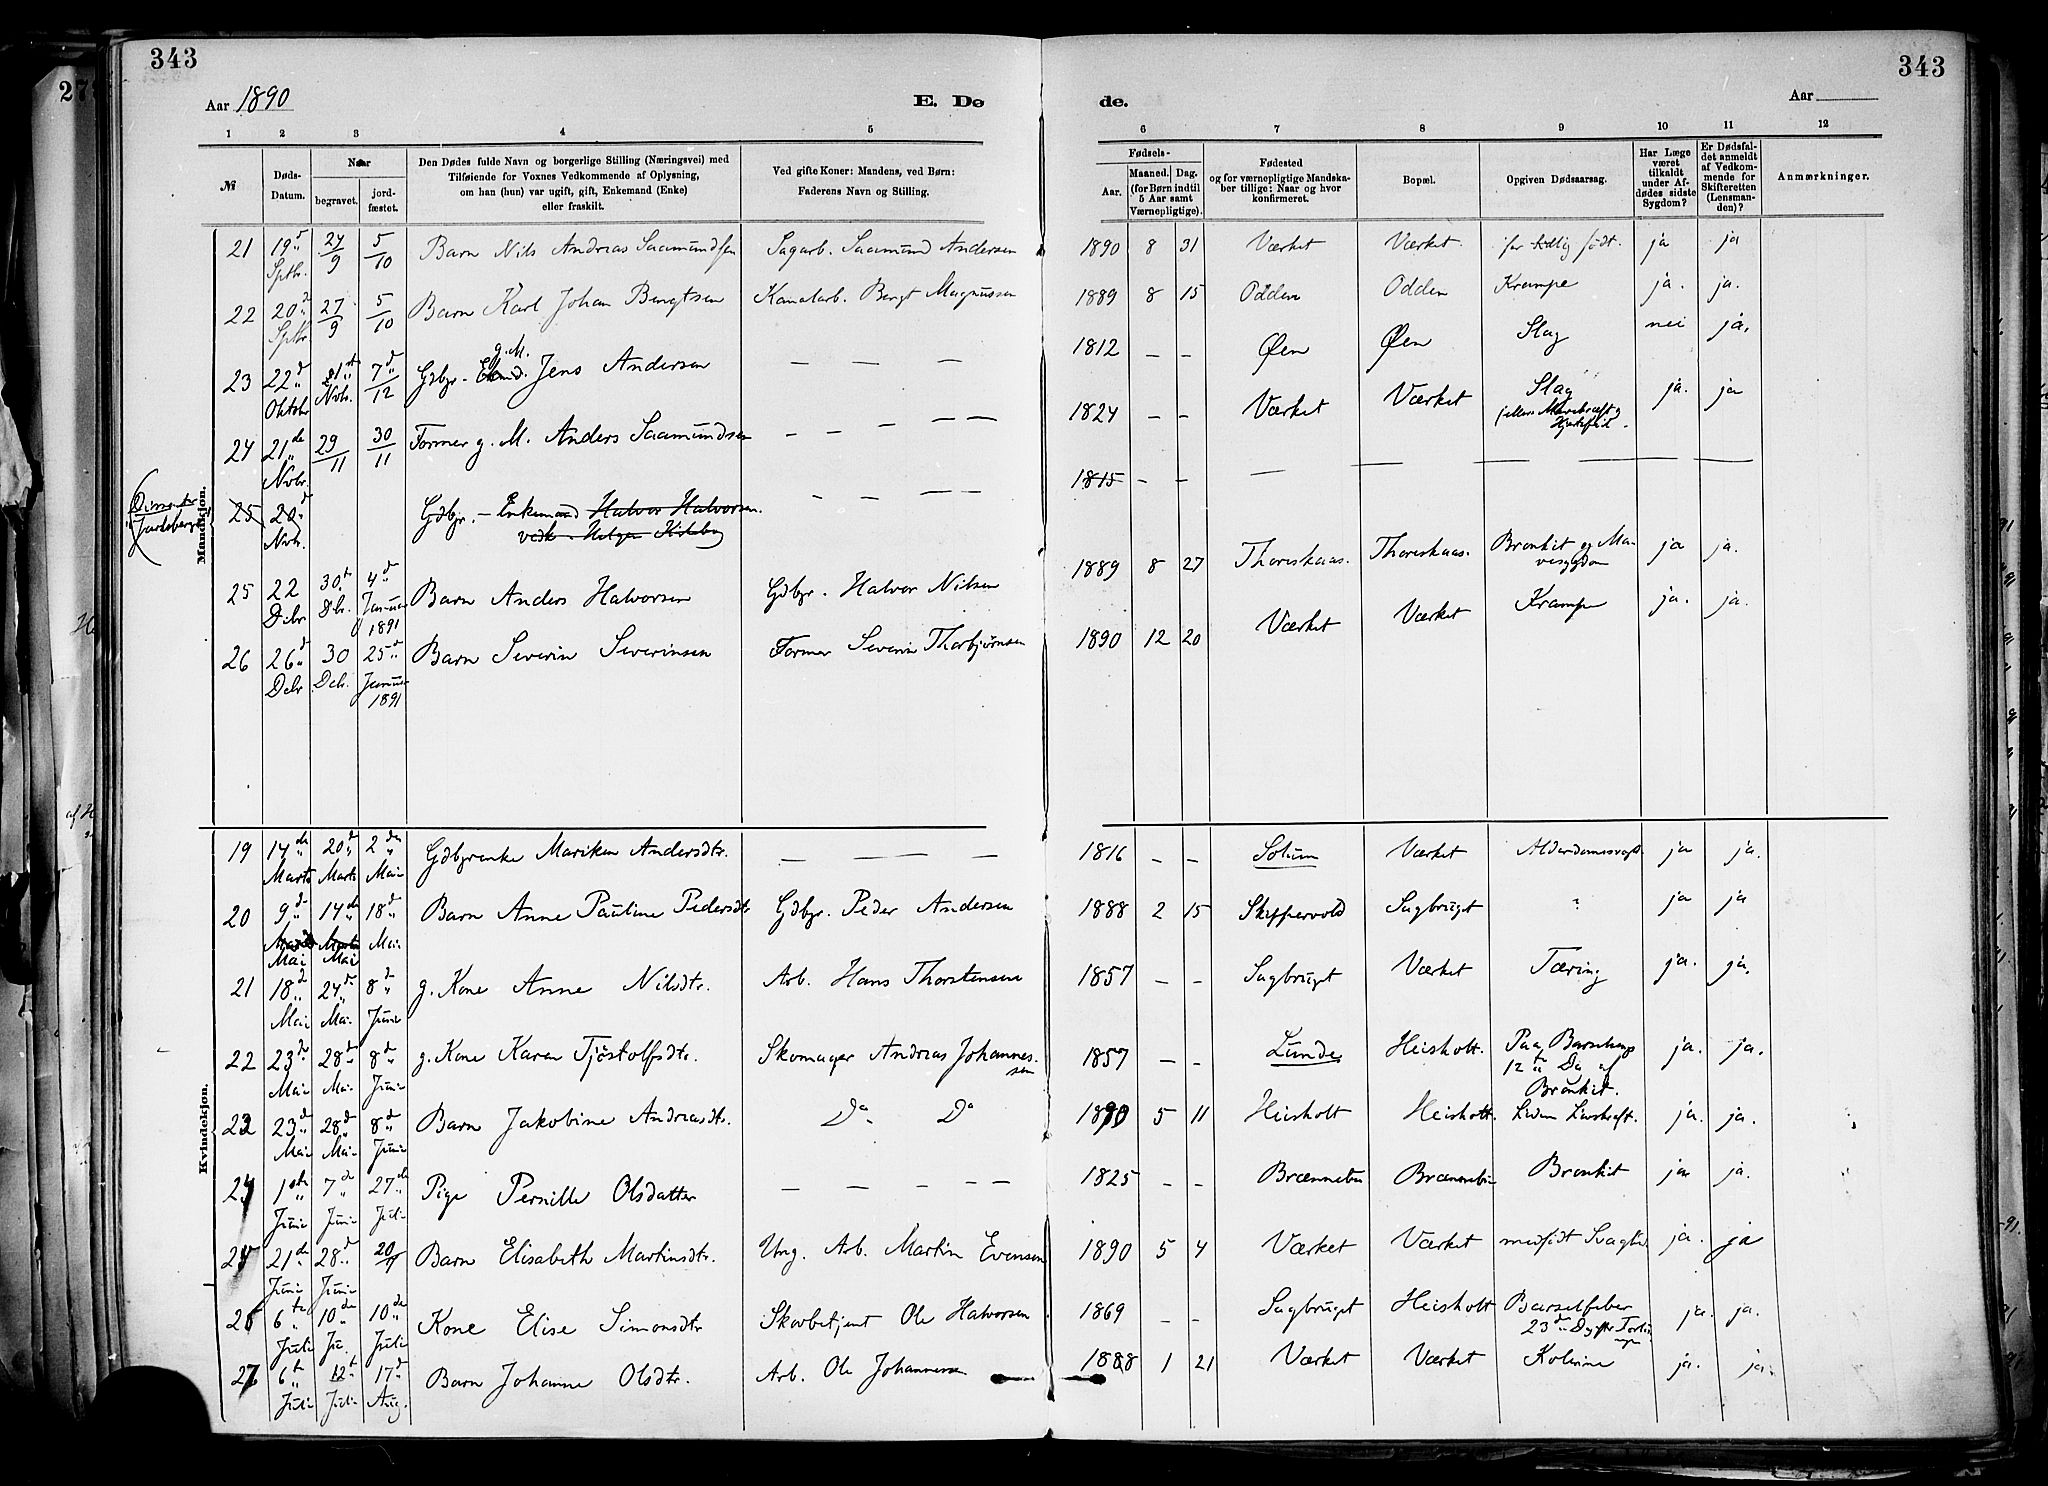 343
343
Aar 1890
E. Dø
de.
Aar
1 2 3 3 4 5
6 7 8 9 10 11 12
№
Døds-Datum.
Naar
begravet.
jord-fæstet.
Den Dødes fulde Navn og borgerlige Stilling (Næringsvei) med
Tilføiende for Voxnes Vedkommende af Oplysning,
om han (hun) var ugift, gift, Enkemand (Enke)
eller fraskilt.
Ved gifte Koner: Mandens, ved Børn:
Faderens Navn og Stilling.
Fødsels-
Aar. Maaned. Dag.
(for Børn indtil
5 Aar samt
Værnepligtige).
Fødested
og for værnepligtige Mandska-
ber tillige: Naar og hvor
konfirmeret.
Bopæl.
Opgiven Dødsaarsag.
Har Læge
været
tilkaldt
under Af-
dødes sidste
Sygdom?
Er Dødsfal-
det anmeldt
af Vedkom-
mende for
Skifteretten
(Lensman-
den)?
Anmærkninger.
Mandkjøn.
21 19 Sptbr. 27/9 5/10 Barn Nils Andreas Saamundsen Sagarb. Saamund Andersen 1890 8 31 Værket Værket for tidlig født. ja ja
22 20 Sptbr. 27/9 5/10 Barn Karl Johan Bengtsen Kanalarb. Bengt Magnussen 1889 8 15 Odden Odden Krampe ja. ja.
23 22d Oktobr 21 Nvbr. 7d/12 Gdbgr. g. M. Jens Andersen — — — 1812 — — Øen Øen Slag nei ja.
24 21de Nvbr. 29/11 30/11 Former g. M. Anders Saamundsen — — — — — 1824 — — Værket Værket Slag ja. ja
25 20d Nvbr. Gdbgr. – Enkemand Halvor Halvorsen. — — — — 1815 — — — — — — —
25 22 Debr. 30 Dbr. 4d Januar 1891 Barn Anders Halvorsen Gdbgr. Halvor Nilsen 1889 8 27 Thoreskaas. Thoreskaas. Bronkit og Ma-
vesygdom ja ja.
26 26d Debr 30 Debr. 25d Januar 1891 Barn Severin Severinsen Former Severin Thorbjørnsen 1890 12 20 Værket Værket Krampe ja. ja.
Kvindekjøn.
19 14de Marts 20d Marts 2den Mai Gdbgrenke Mariken Andersdtr. — — — — 1816 — — Solum Værket Alderdomssvagh. ja ja.
20 9d Mai 14de Mai 18d Mai Barn Anne Pauline Pedersdtr Gdbgr. Peder Andersen 1888 2 15 Skippervold Sagbruget " ja ja
21 18d Mai 24d Mai 8d Juni g. Kone Anne Nilsdtr. Arb. Hans Thorstensen 1857 — — Sagbruget Værket Tæring ja. ja.
22 23d Mai 28d Mai 8d Juni g. Kone Karen Tjøstolfsdtr. Skomager Andreas Johannes-
sen 1857 — — Lunde Heisholt. Paa Barselsengs
12te Da af
Bronkit. ja. ja.
23 23d Mai 28d Mai 8d Juni Barn Jakobine Andreasdtr. Do Do 1890 5 11 Heisholt Heisholt. Liden Livskraft. ja. ja.
24 1ste Juni 7de Juni 27de Juli Pige Pernille Olsdatter — — — — — 1825 — — Brænnebu Brænnebu Bronkit ja ja.
25 21de Juni 28d Juni 20/7 Barn Elisabeth Martinsdtr. Ung. Arb. Martin Evensen 1890 5 4 Værket Værket medfødt Svaghed ja. ja
26 6te Juli 10de Ju. 10de Juli Kone Elise Simonsdtr Skovbetjent Ole Halvorsen 1869 — — Sagbruget Heisholt Barselfeber ja. ja.
27 6te Juli 12t Juli 17d Aug. Barn Johanne Olsdtr. Arb. Ole Johannesen 1888 1 21 Værket Værket Kolerine ja. ja.